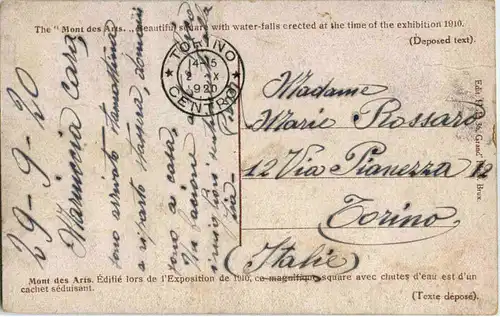 The "Mont des Arts. „ Beautiful square with water-falls erected at the time of the exhibition 1910.
(Deposed text).
TORINO
14-15
2 X
920
CENTRO
29-9-20
Mariuccia cara,
sono arrivato stamattina
e riparto stasera, domani
sono a casa,
Un bacione
Madame
Marie Rossaro
12 Via Pianezza 12
Torino
(Italie)
Grand' Brux.
Mont des Arts. Édifié lors de l'Exposition de 1910, ce magnifique square avec chutes d'eau est d'un
cachet séduisant.
(Texte déposé).